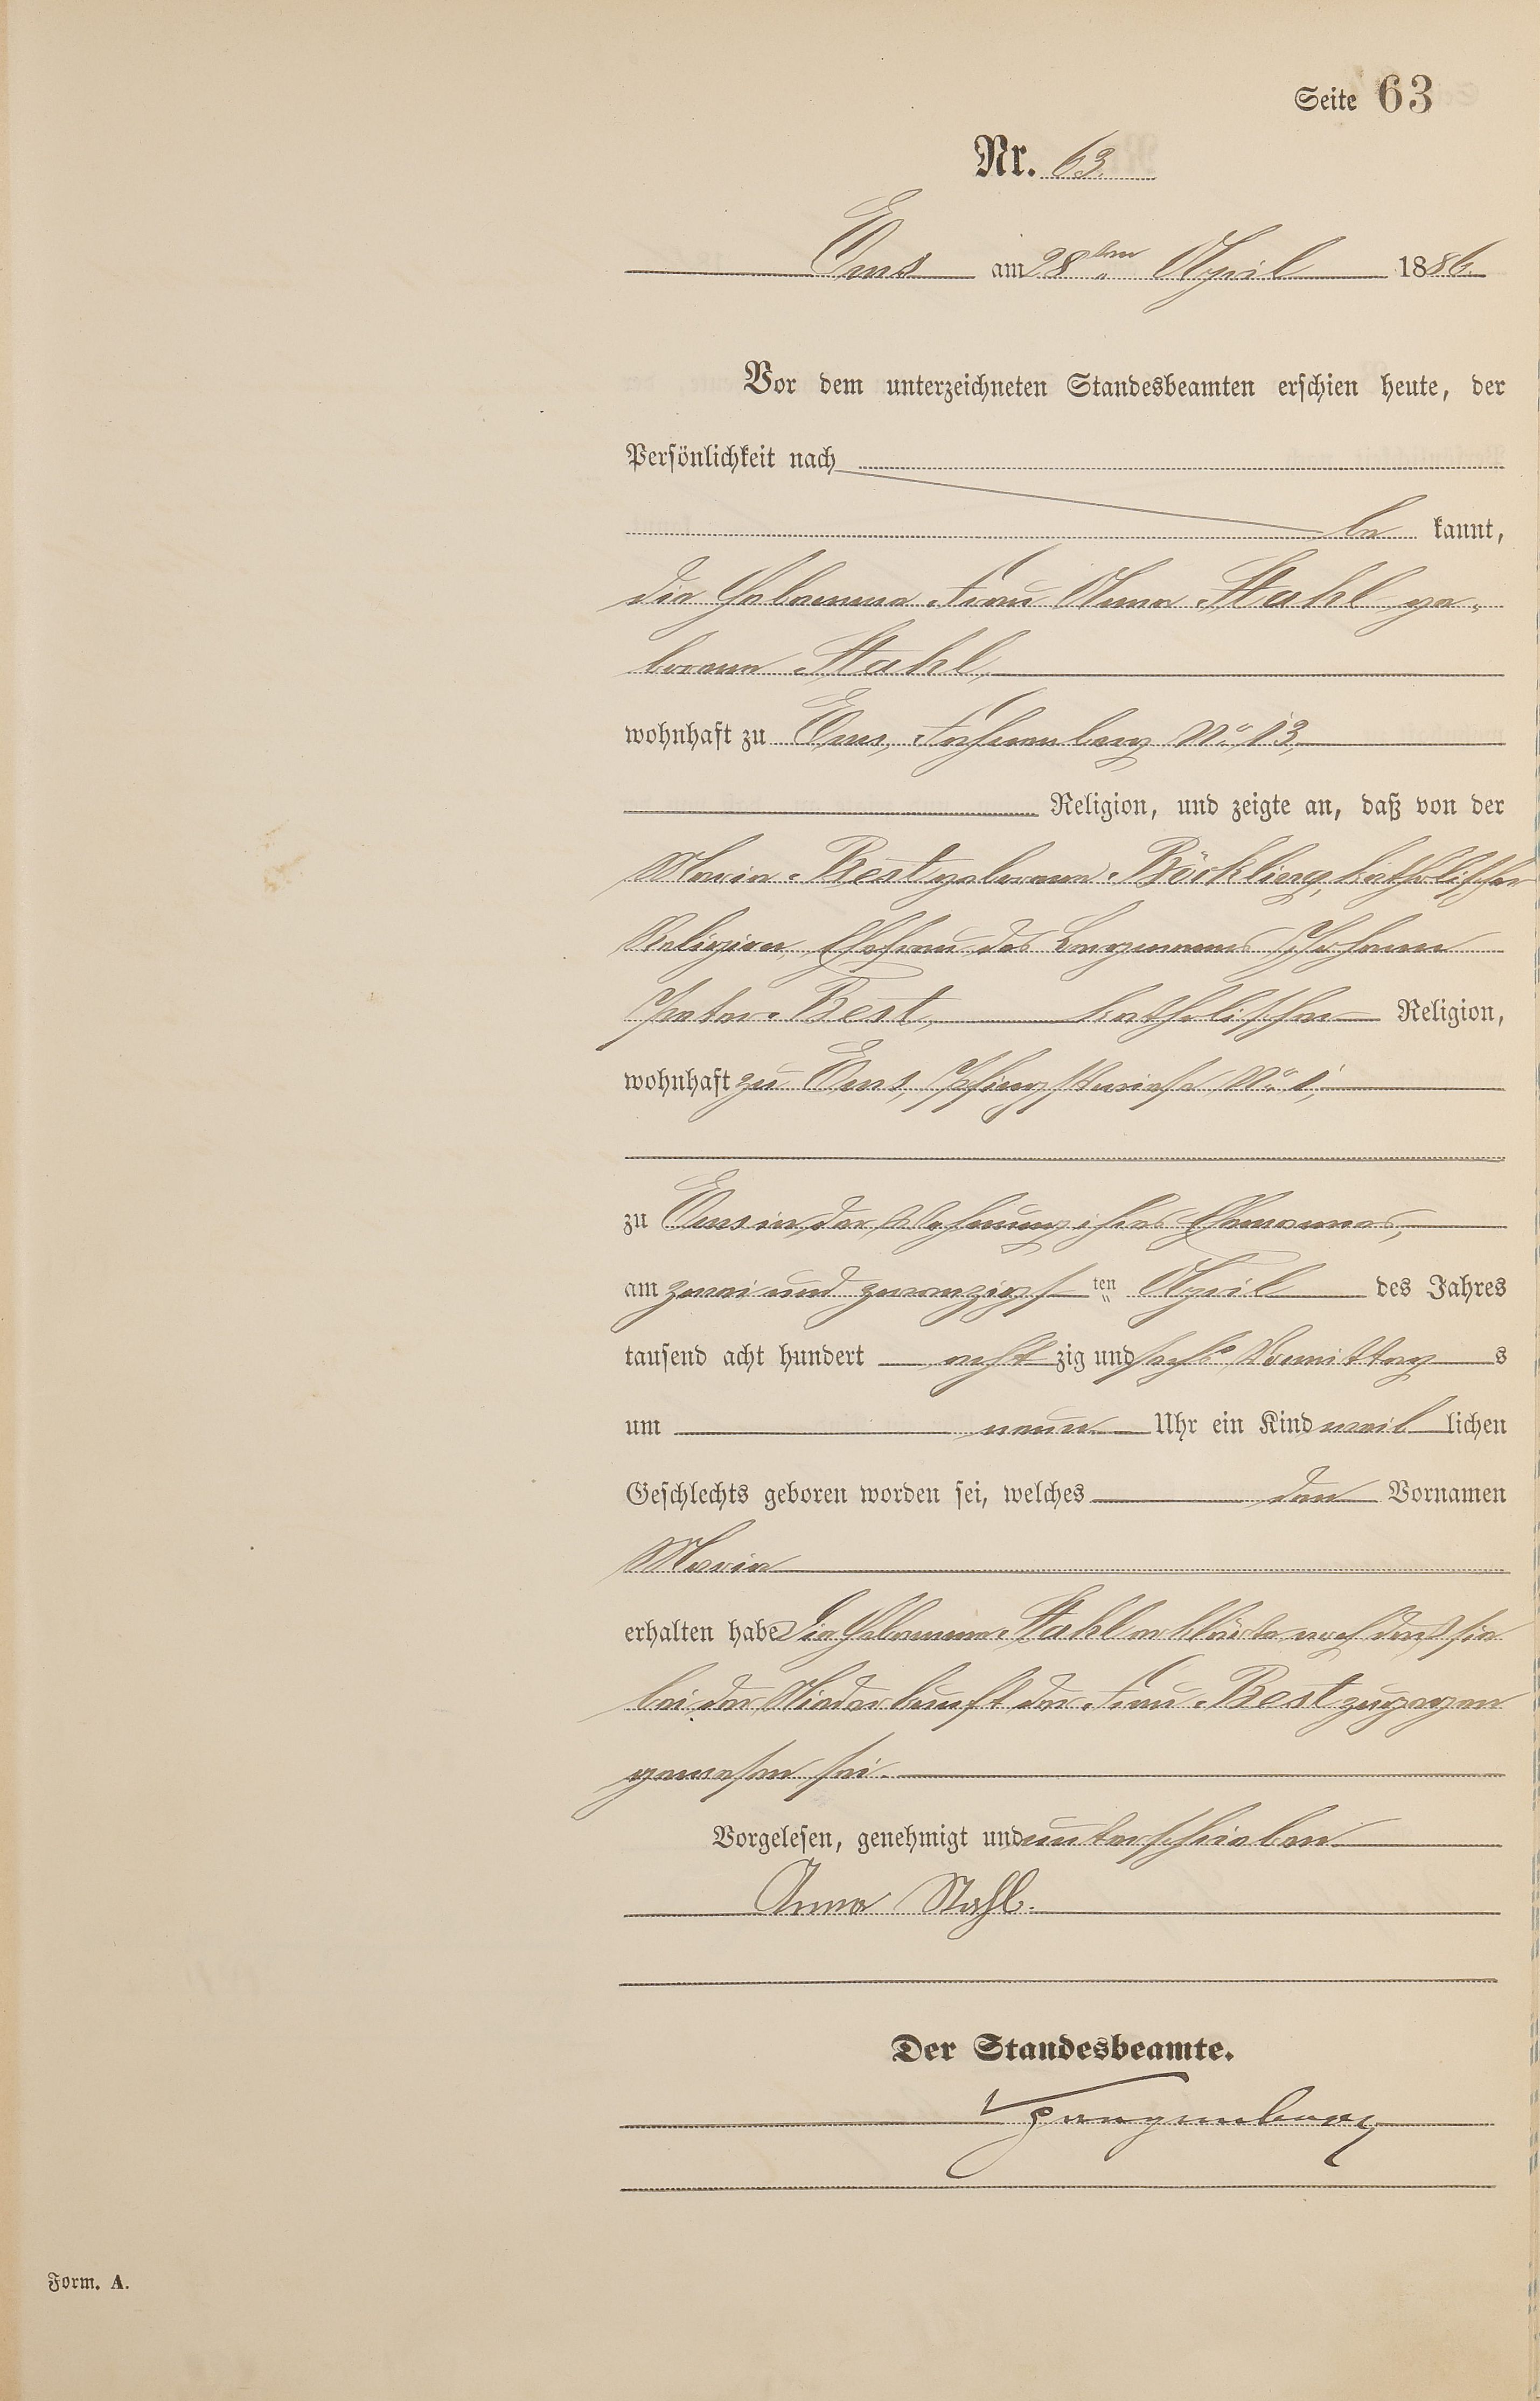 Seite 63
Nr. 63.
Ems am 28ten April 1886.
Vor dem unterzeichneten Standesbeamten erschien heute, der
Persönlichkeit nach
be kannt,
die Hebamme Frau Anna Stahl ge-
borene Stahl,
wohnhaft zu Ems, No 13,
Religion, und zeigte an, daß von der
Maria Best geborene Böckling, katholischer
Religion, Ehefrau des Bergmannes Johann
Peter Best, katholischer Religion,
wohnhaft zu Ems, Pfingstwiese No 1,
zu Ems in der Wohnung ihres Ehemannes,
am zwei und zwanzigs ten April des Jahres
tausend acht hundert acht zig und sechs Vormittag s
um neun Uhr ein Kind weib lichen
Geschlechts geboren worden sei, welches den Vornamen
Maria
erhalten habe Die Hebamme Stahl erklärte noch daß sie
bei der Niederkunft der Frau Best zugegen
gewesen sei.
Vorgelesen, genehmigt und unterschrieben
Anna Stahl.
Der Standesbeamte.
Form. A.